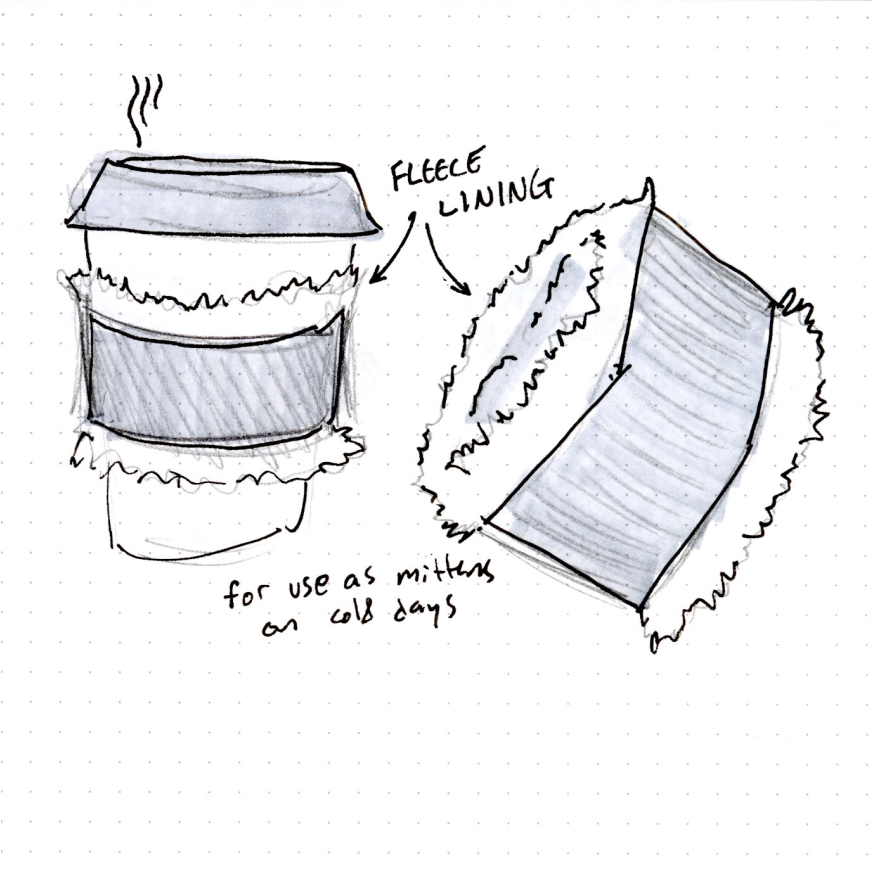 FLEECE
LINING
for use as mittens
on cold days